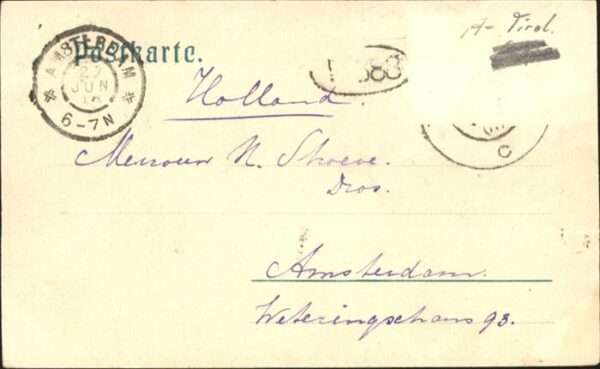 A-Tirol.
Postkarte.
AMSTERDAM
27
JUN
6-7N
Holland.
N.
Dros.
Amsterdam.
Weteringschans 93.
C